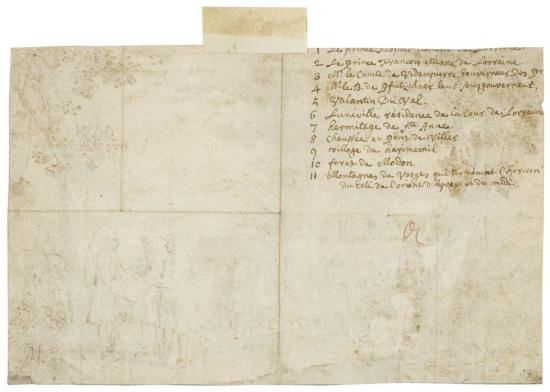 1 Le prince
2 Le Prince François etienne de Lorraine.
3 Mr. le Comte de Vidampierre, gouverneur des Pr
4 Mr. le B. de Pfutschner leur sousgouverneur,
5 Valantin Du Val.
6 Luneville residence de la Cour de Lorraine
7 hermitage de Ste Anne.
8 Chaussée et pont de Viller
9 village de harimenil
10 foret de Modon
11 Montagnes de Vosges qui terminent l'horison
du coté de l'orient d'hyver et du midi.